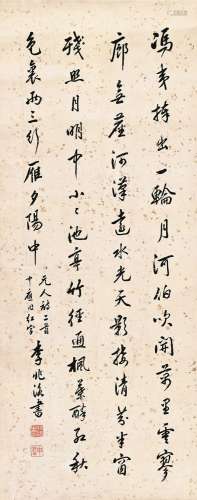 馮夷捧出一輪月河伯吹開萬里雲寥
廓無塵河漢遠水光天影接清芬半窗
殘照月明中小小池亭竹徑通楓葉醉紅秋
色裏兩三行雁夕陽中
元人詩二首
李兆洛書